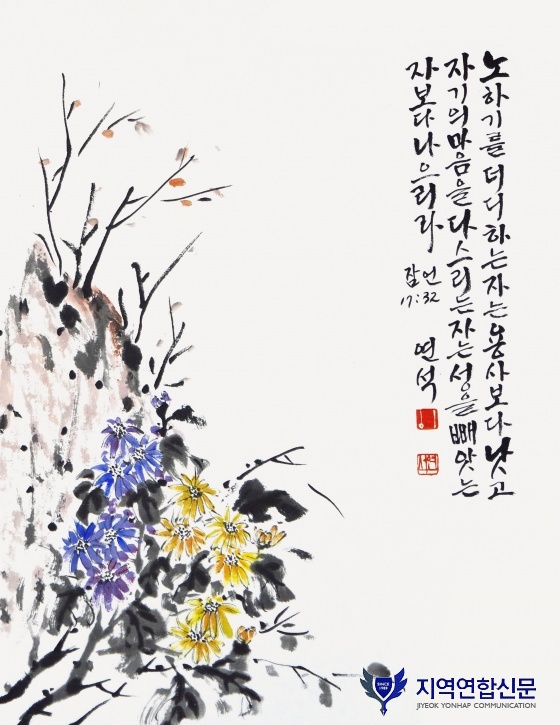 노하기를 더디하는 자는 용사보다 낫고
자기의 마음을 다스리는 자는 성을 빼앗는
자보다 나으리라
잠언
17:32
연석
SINCE
1989
지역연합신문
JIYEOK YONHAP COMMUNICATION